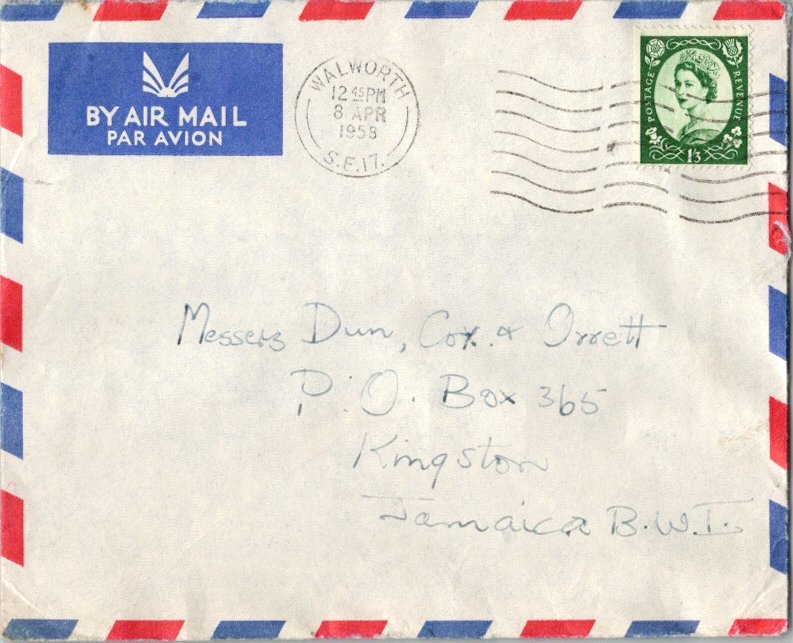 BY AIR MAIL
PAR AVION
WALWORTH
12 45 PM
8 APR
1958
S.E.17.
POSTAGE
REVENUE
1/3
Messers Dun, Cox. & Orrett
P.O. Box 365
Kingston
Jamaica B.W.I.